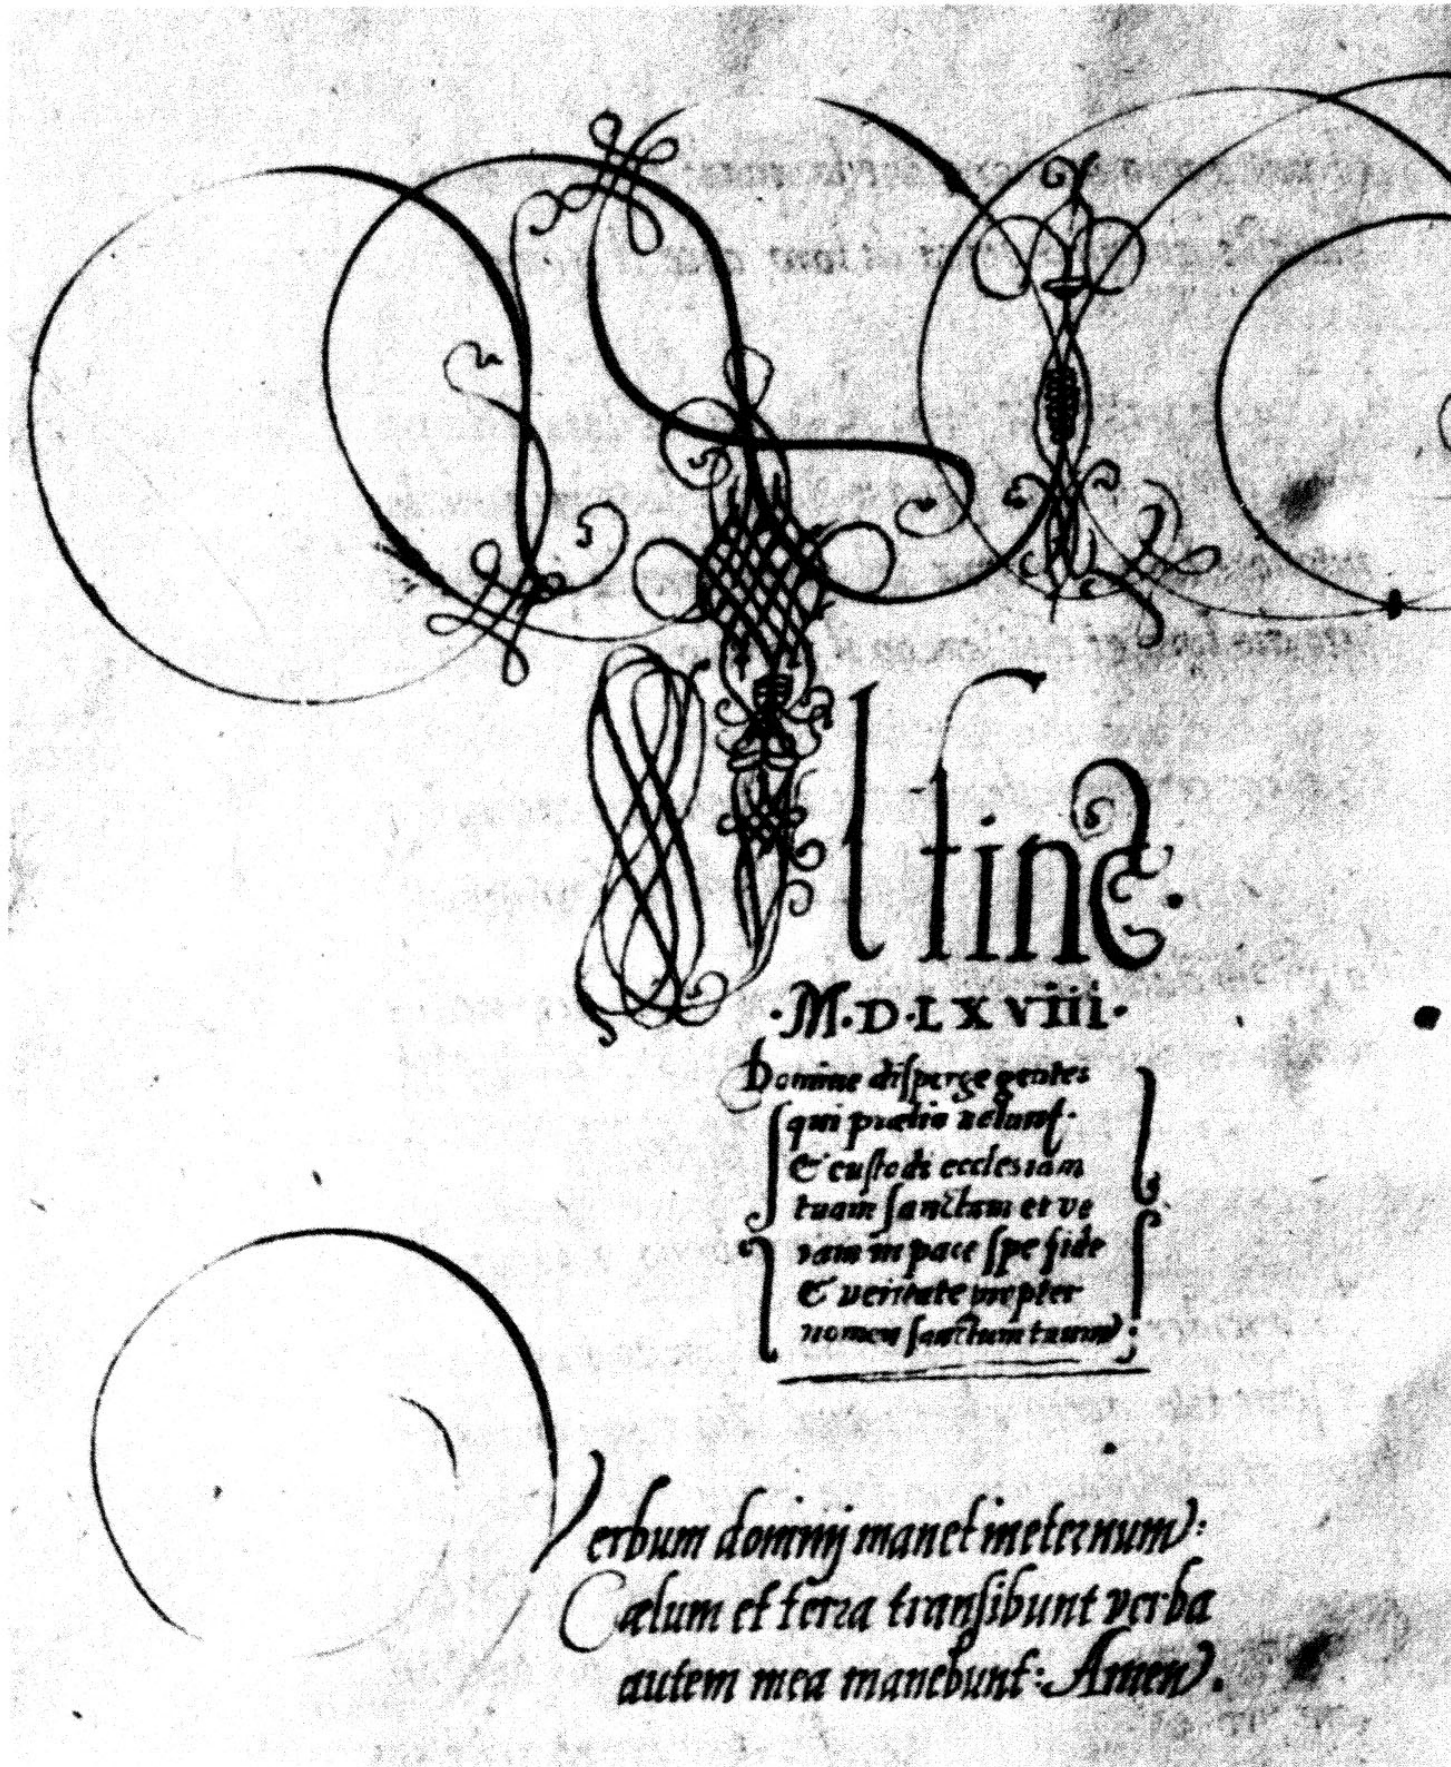 Il fine.
·M·D·LXVIII·
Domine disperge gentes
qui prælia uolunt.
& custodi ecclesiam
tuam sanctam et ve
ram in pace spe fide
& veritate propter
nomen sanctum tuum:
Verbum dominj manet ineternum:
Cælum et terra transibunt verba
autem mea manebunt: Amen.